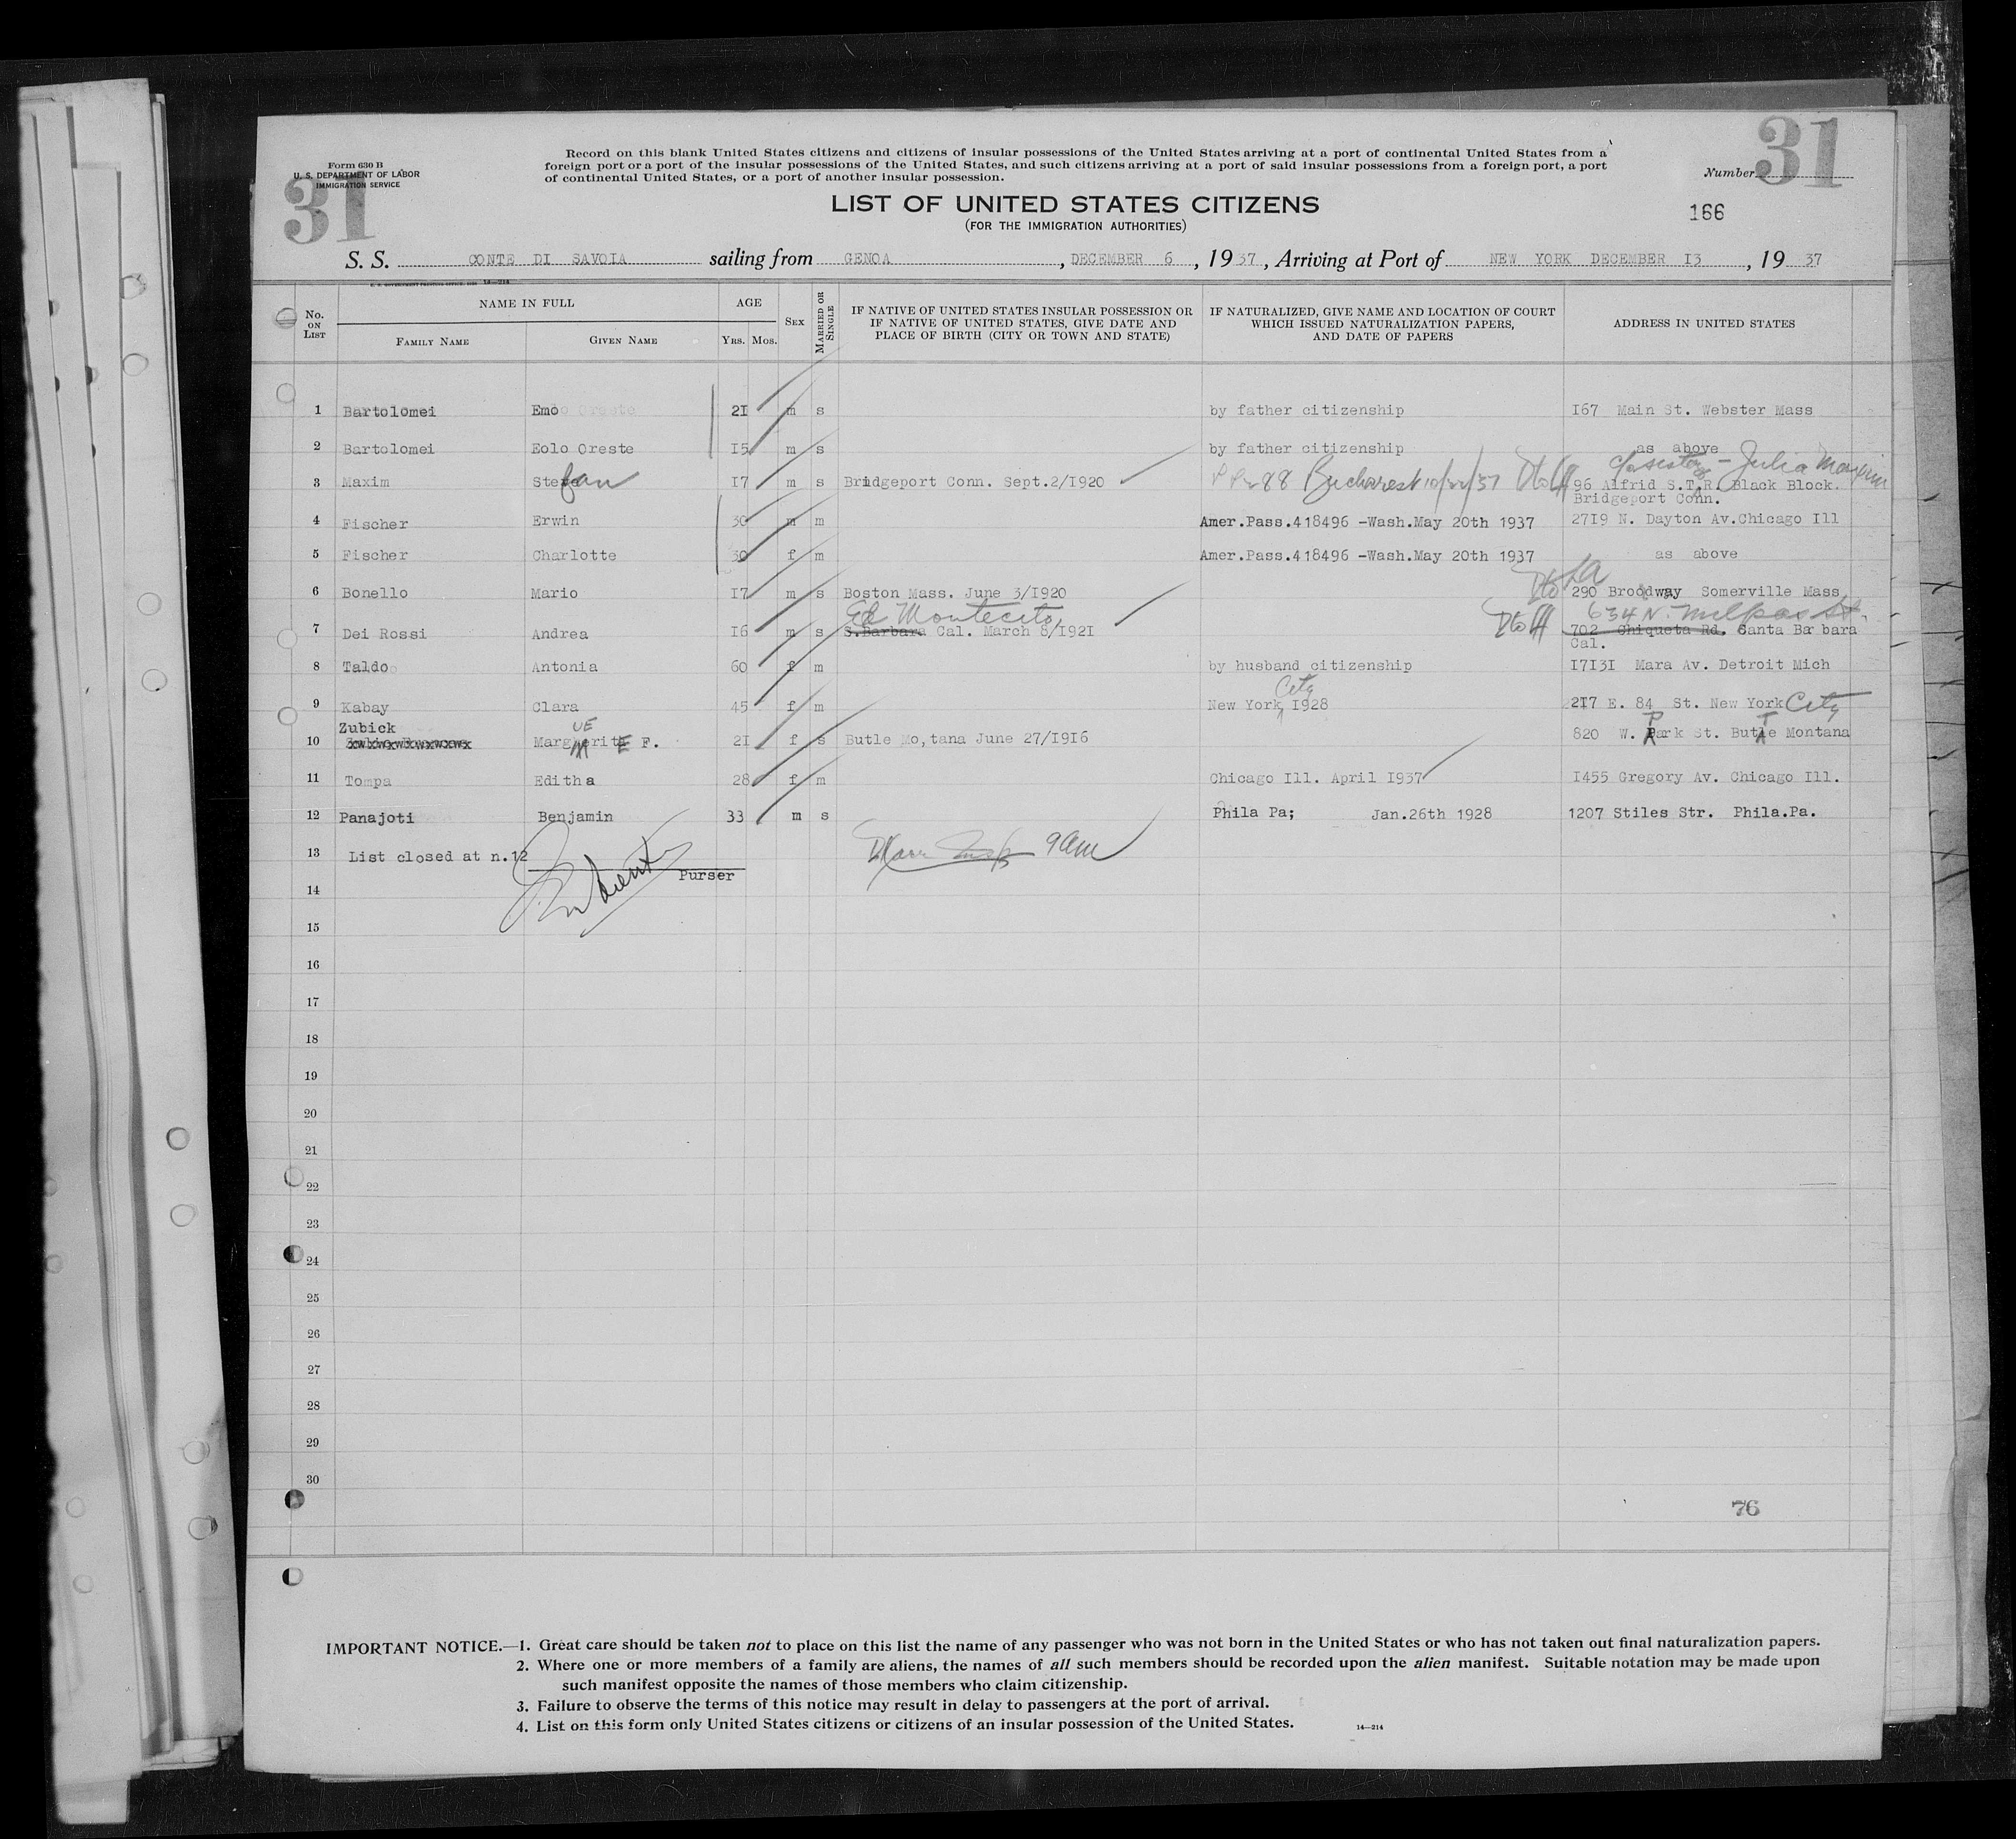 31
Form 630 B
U. S. DEPARTMENT OF LABOR
IMMIGRATION SERVICE
31
Record on this blank United States citizens and citizens of insular possessions of the United States arriving at a port of continental United States from a
foreign port or a port of the insular possessions of the United States, and such citizens arriving at a port of said insular possessions from a foreign port, a port
of continental United States, or a port of another insular possession.
Number
LIST OF UNITED STATES CITIZENS
(FOR THE IMMIGRATION AUTHORITIES)
166
S. S. CONTE DI SAVOIA sailing from GENOA, DECEMBER 6, 1937, Arriving at Port of NEW YORK DECEMBER I3, 19 37
No. ON LIST NAME IN FULL AGE SEX MARRIED OR SINGLE IF NATIVE OF UNITED STATES INSULAR POSSESSION OR IF NATIVE OF UNITED STATES, GIVE DATE AND PLACE OF BIRTH (CITY OR TOWN AND STATE) IF NATURALIZED, GIVE NAME AND LOCATION OF COURT WHICH ISSUED NATURALIZATION PAPERS, AND DATE OF PAPERS ADDRESS IN UNITED STATES
FAMILY NAME GIVEN NAME YRS. MOS.
1 Bartolomei Emo 2I m s by father citizenship I67 Main St. Webster Mass
2 Bartolomei Eolo Oreste I5 m s by father citizenship as above
Julia Maxim
3 Maxim Stefan I7 m s Bridgeport Conn. Sept.2/I920 88 Bucharest 10/22/37 96 Alfrid S.T.R. Black Block.
Bridgeport Conn.
4 Fischer Erwin 30 m m Amer.Pass.418496 -Wash.May 20th 1937 27I9 N. Dayton Av.Chicago Ill
5 Fischer Charlotte 30 f m Amer.Pass.418496 -Wash.May 20th 1937 as above
6 Bonello Mario I7 m s Boston Mass. June 3/I920 290 Broodway Somerville Mass
Montecito 634 N. Milpas St.
7 Dei Rossi Andrea I6 m s S.Barbara Cal. March 8/I92I 702 Chiqueta Rd. Santa Barbara
Cal.
8 Taldo Antonia 60 f m by husband citizenship I7I3I Mara Av. Detroit Mich
City
9 Kabay Clara 45 f m New York I928 2I7 E. 84 St. New York City
Zubick UE P T
10 Marguerite F. 2I f s Butle Mo,tana June 27/I9I6 820 W. Park St. Butte Montana
11 Tompa Editha 28 f m Chicago Ill. April I937 I455 Gregory Av. Chicago Ill.
12 Panajoti Benjamin 33 m s Phila Pa; Jan.26th 1928 1207 Stiles Str. Phila.Pa.
13 List closed at n.12 9am
Purser
14
15
16
17
18
19
20
21
22
23
24
25
26
27
28
29
30
76
IMPORTANT NOTICE.—1. Great care should be taken not to place on this list the name of any passenger who was not born in the United States or who has not taken out final naturalization papers.
2. Where one or more members of a family are aliens, the names of all such members should be recorded upon the alien manifest. Suitable notation may be made upon
such manifest opposite the names of those members who claim citizenship.
3. Failure to observe the terms of this notice may result in delay to passengers at the port of arrival.
4. List on this form only United States citizens or citizens of an insular possession of the United States.
14—214